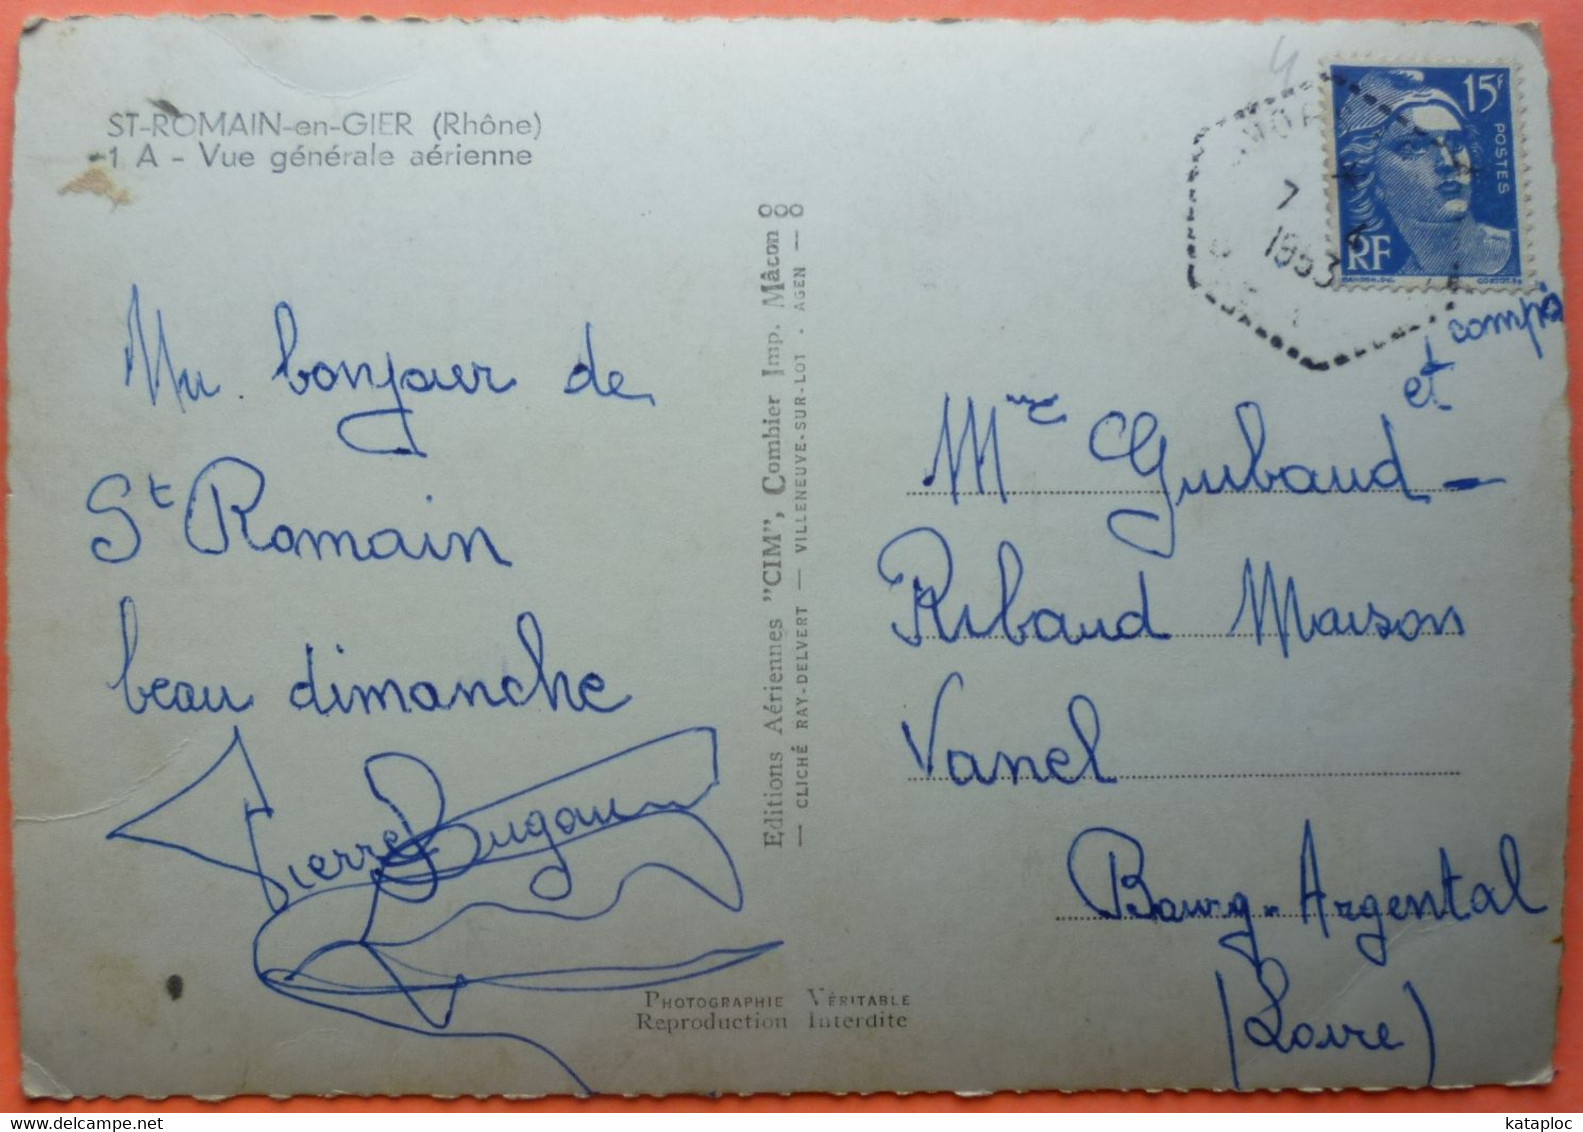 ST-ROMAIN-en-GIER (Rhône)
1 A - Vue générale aérienne
Un bonjour de
St Romain
beau dimanche
Pierre
Editions Aériennes "CIM", Combier Imp. Mâcon
— CLICHÉ RAY-DELVERT — VILLENEUVE-SUR-LOT - AGEN —
PHOTOGRAPHIE VÉRITABLE
Reproduction Interdite
15F
POSTES
RF
7
1953
4
et
Mme Guibaud -
Ribaud Maison
Vanel
Bourg-Argental
(Loire)
kataploc
www.delcampe.net